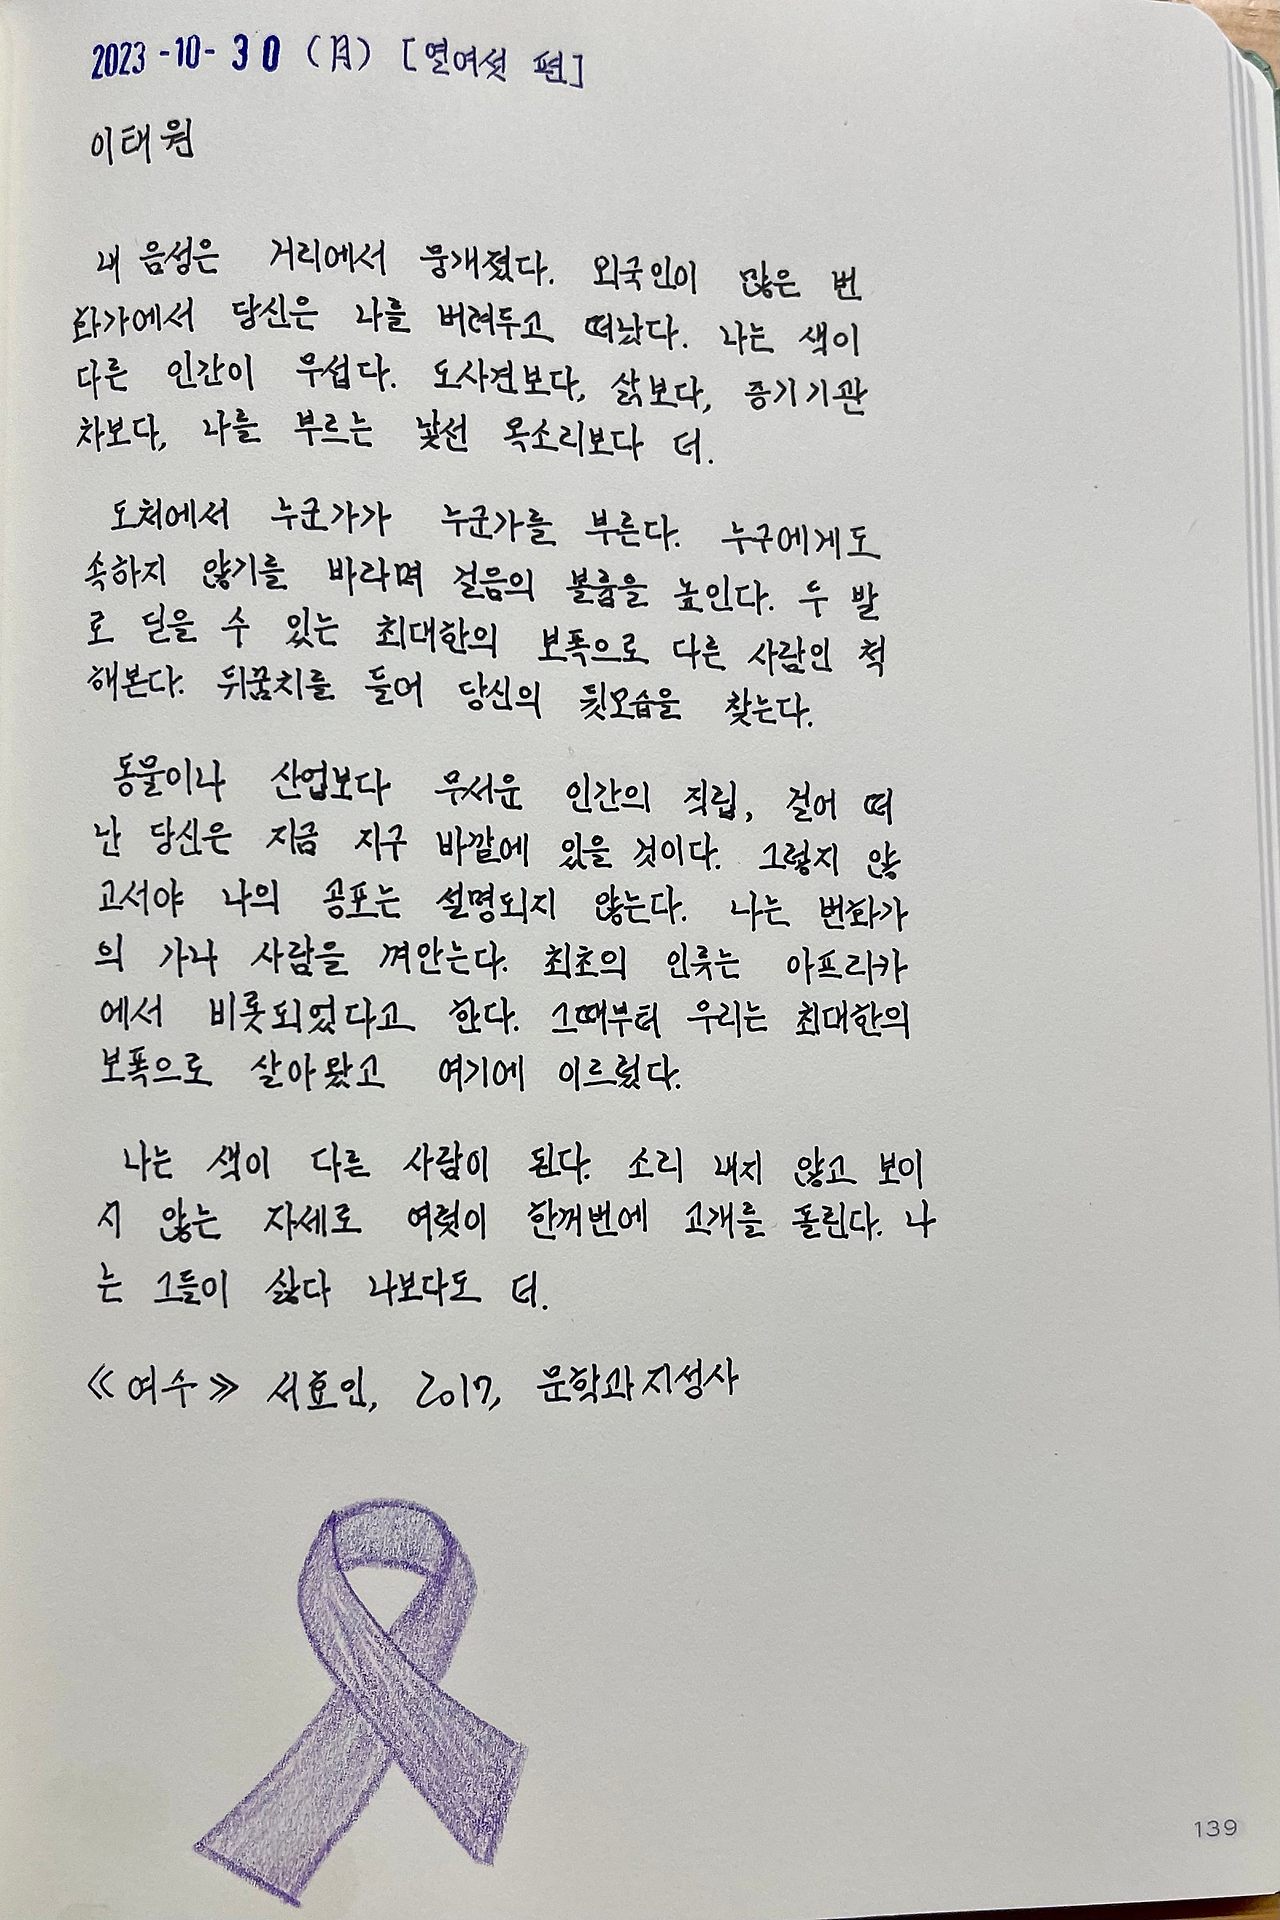 2023-10-30 (月) [열여섯 편]
이태원
내 음성은 거리에서 뭉개졌다. 외국인이 많은 번
화가에서 당신은 나를 버려두고 떠났다. 나는 색이
다른 인간이 무섭다. 도사견보다, 삵보다, 증기기관
차보다, 나를 부르는 낯선 목소리보다 더.
도처에서 누군가가 누군가를 부른다. 누구에게도
속하지 않기를 바라며 걸음의 볼륨을 높인다. 두 발
로 딛을 수 있는 최대한의 보폭으로 다른 사람인 척
해본다. 뒤꿈치를 들어 당신의 뒷모습을 찾는다.
동물이나 산업보다 무서운 인간의 직립, 걸어 떠
난 당신은 지금 지구 바깥에 있을 것이다. 그렇지 않
고서야 나의 공포는 설명되지 않는다. 나는 번화가
의 가나 사람을 껴안는다. 최초의 인류는 아프리카
에서 비롯되었다고 한다. 그때부터 우리는 최대한의
보폭으로 살아왔고 여기에 이르렀다.
나는 색이 다른 사람이 된다. 소리 내지 않고 보이
지 않는 자세로 여럿이 한꺼번에 고개를 돌린다. 나
는 그들이 싫다 나보다도 더.
《여수》 서효인, 2017, 문학과지성사
139